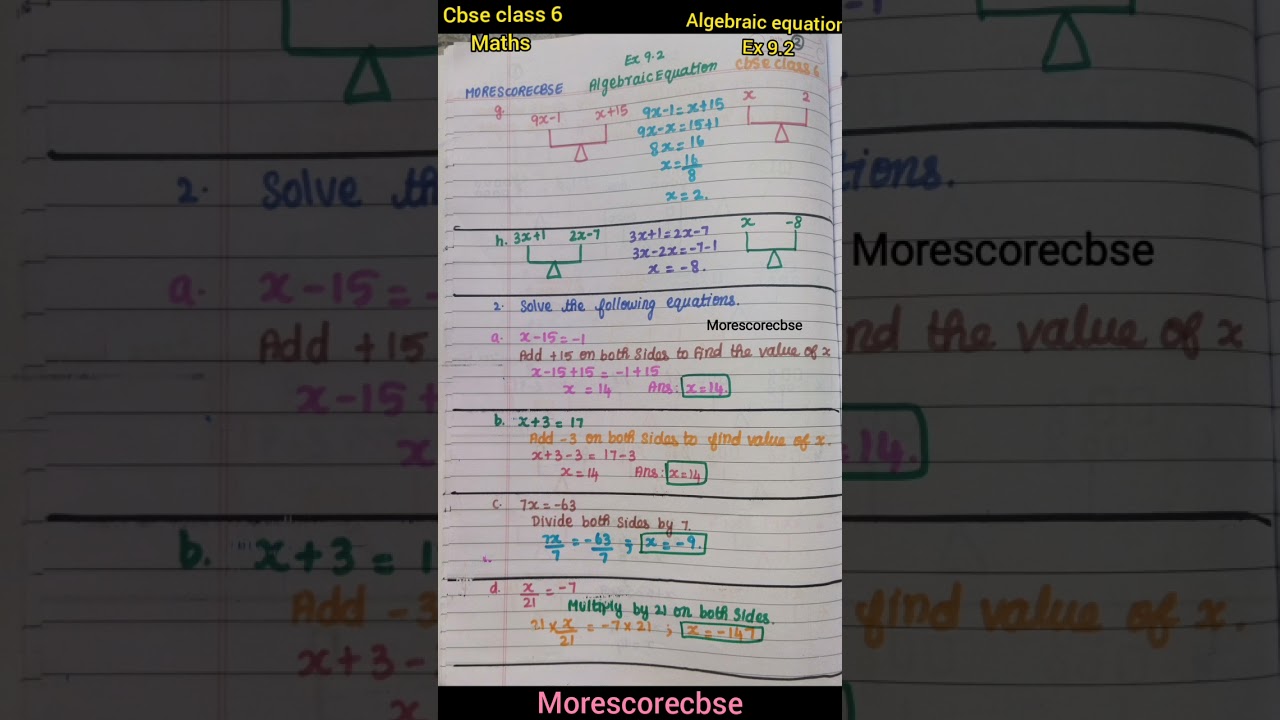 Cbse class 6
Algebraic equation
Maths
Ex 9.2
Ex 9.2
MORESCORECBSE
Algebraic Equation
cbse class 6
g.
9x-1
x+15
9x-1 = x+15
x
2
9x-x = 15+1
8x = 16
x = 16/8
x = 2.
h.
3x+1
2x-7
3x+1 = 2x-7
x
-8
3x-2x = -7-1
x = -8.
2. Solve the following equations.
Morescorecbse
a. x-15 = -1
Add +15 on both sides to find the value of x
x-15+15 = -1+15
x = 14 Ans: x = 14.
b. x+3 = 17
Add -3 on both sides to find value of x.
x+3-3 = 17-3
x = 14 Ans: x = 14
c. 7x = -63
Divide both sides by 7.
7x/7 = -63/7 ; x = -9.
d. x/21 = -7
Multiply by 21 on both sides.
21 × x/21 = -7 × 21 ; x = -147
Morescorecbse
2. Solve th
tions.
Morescorecbse
a. x-15 =
Add +15
nd the value of x
x-15+
x
=14.
b. x+3 = 1
Add -3
find value of x.
x+3-
x